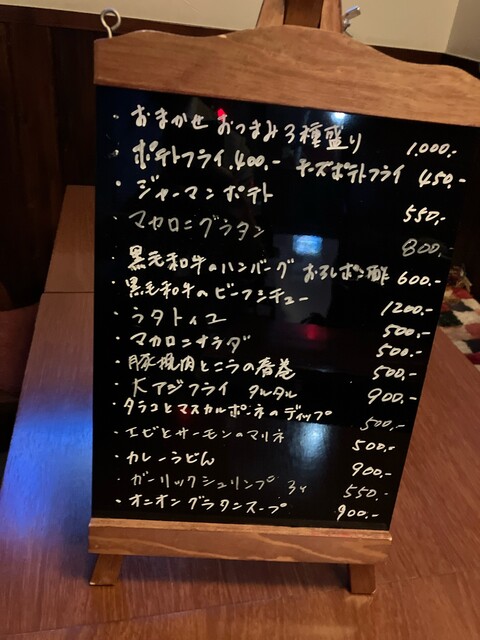 ・おまかせ おつまみ3種盛り 1,000.-
・ポテトフライ.400.- チーズポテトフライ 450.-
・ジャーマンポテト 550.-
・マカロニグラタン 800.-
・黒毛和牛のハンバーグ おろしポン酢 600.-
・黒毛和牛のビーフシチュー 1200.-
・ラタトィユ 500.-
・マカロニサラダ 500.-
・豚挽肉とニラの春巻 500.-
・大アジフライ タルタル 900.-
・タラコとマスカルポーネのディップ 500.-
・エビとサーモンのマリネ 500.-
・カレーうどん 900.-
・ガーリックシュリンプ 550.-
・オニオングラタンスープ 900.-